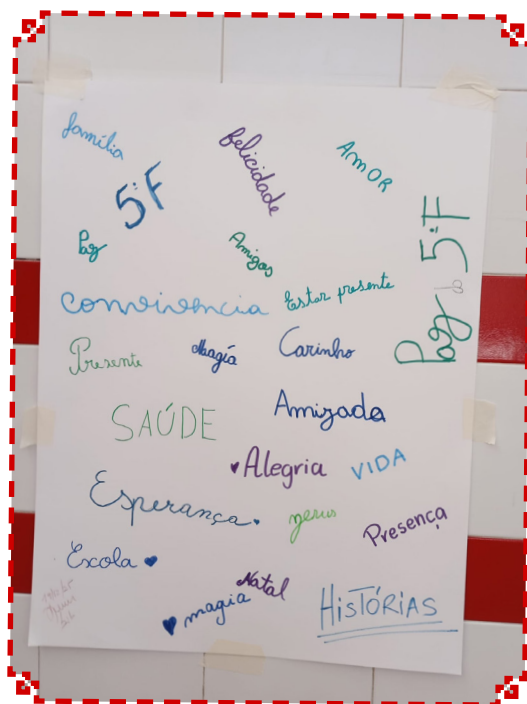 família
felicidade
AMOR
5º F
Paz 5º F
Paz
Amigos
convivência
Estar presente
Presente
Magia
Carinho
SAÚDE
Amizade
Alegria
VIDA
Esperança
jesus
Presença
Escola
Natal
magia
HISTÓRIAS